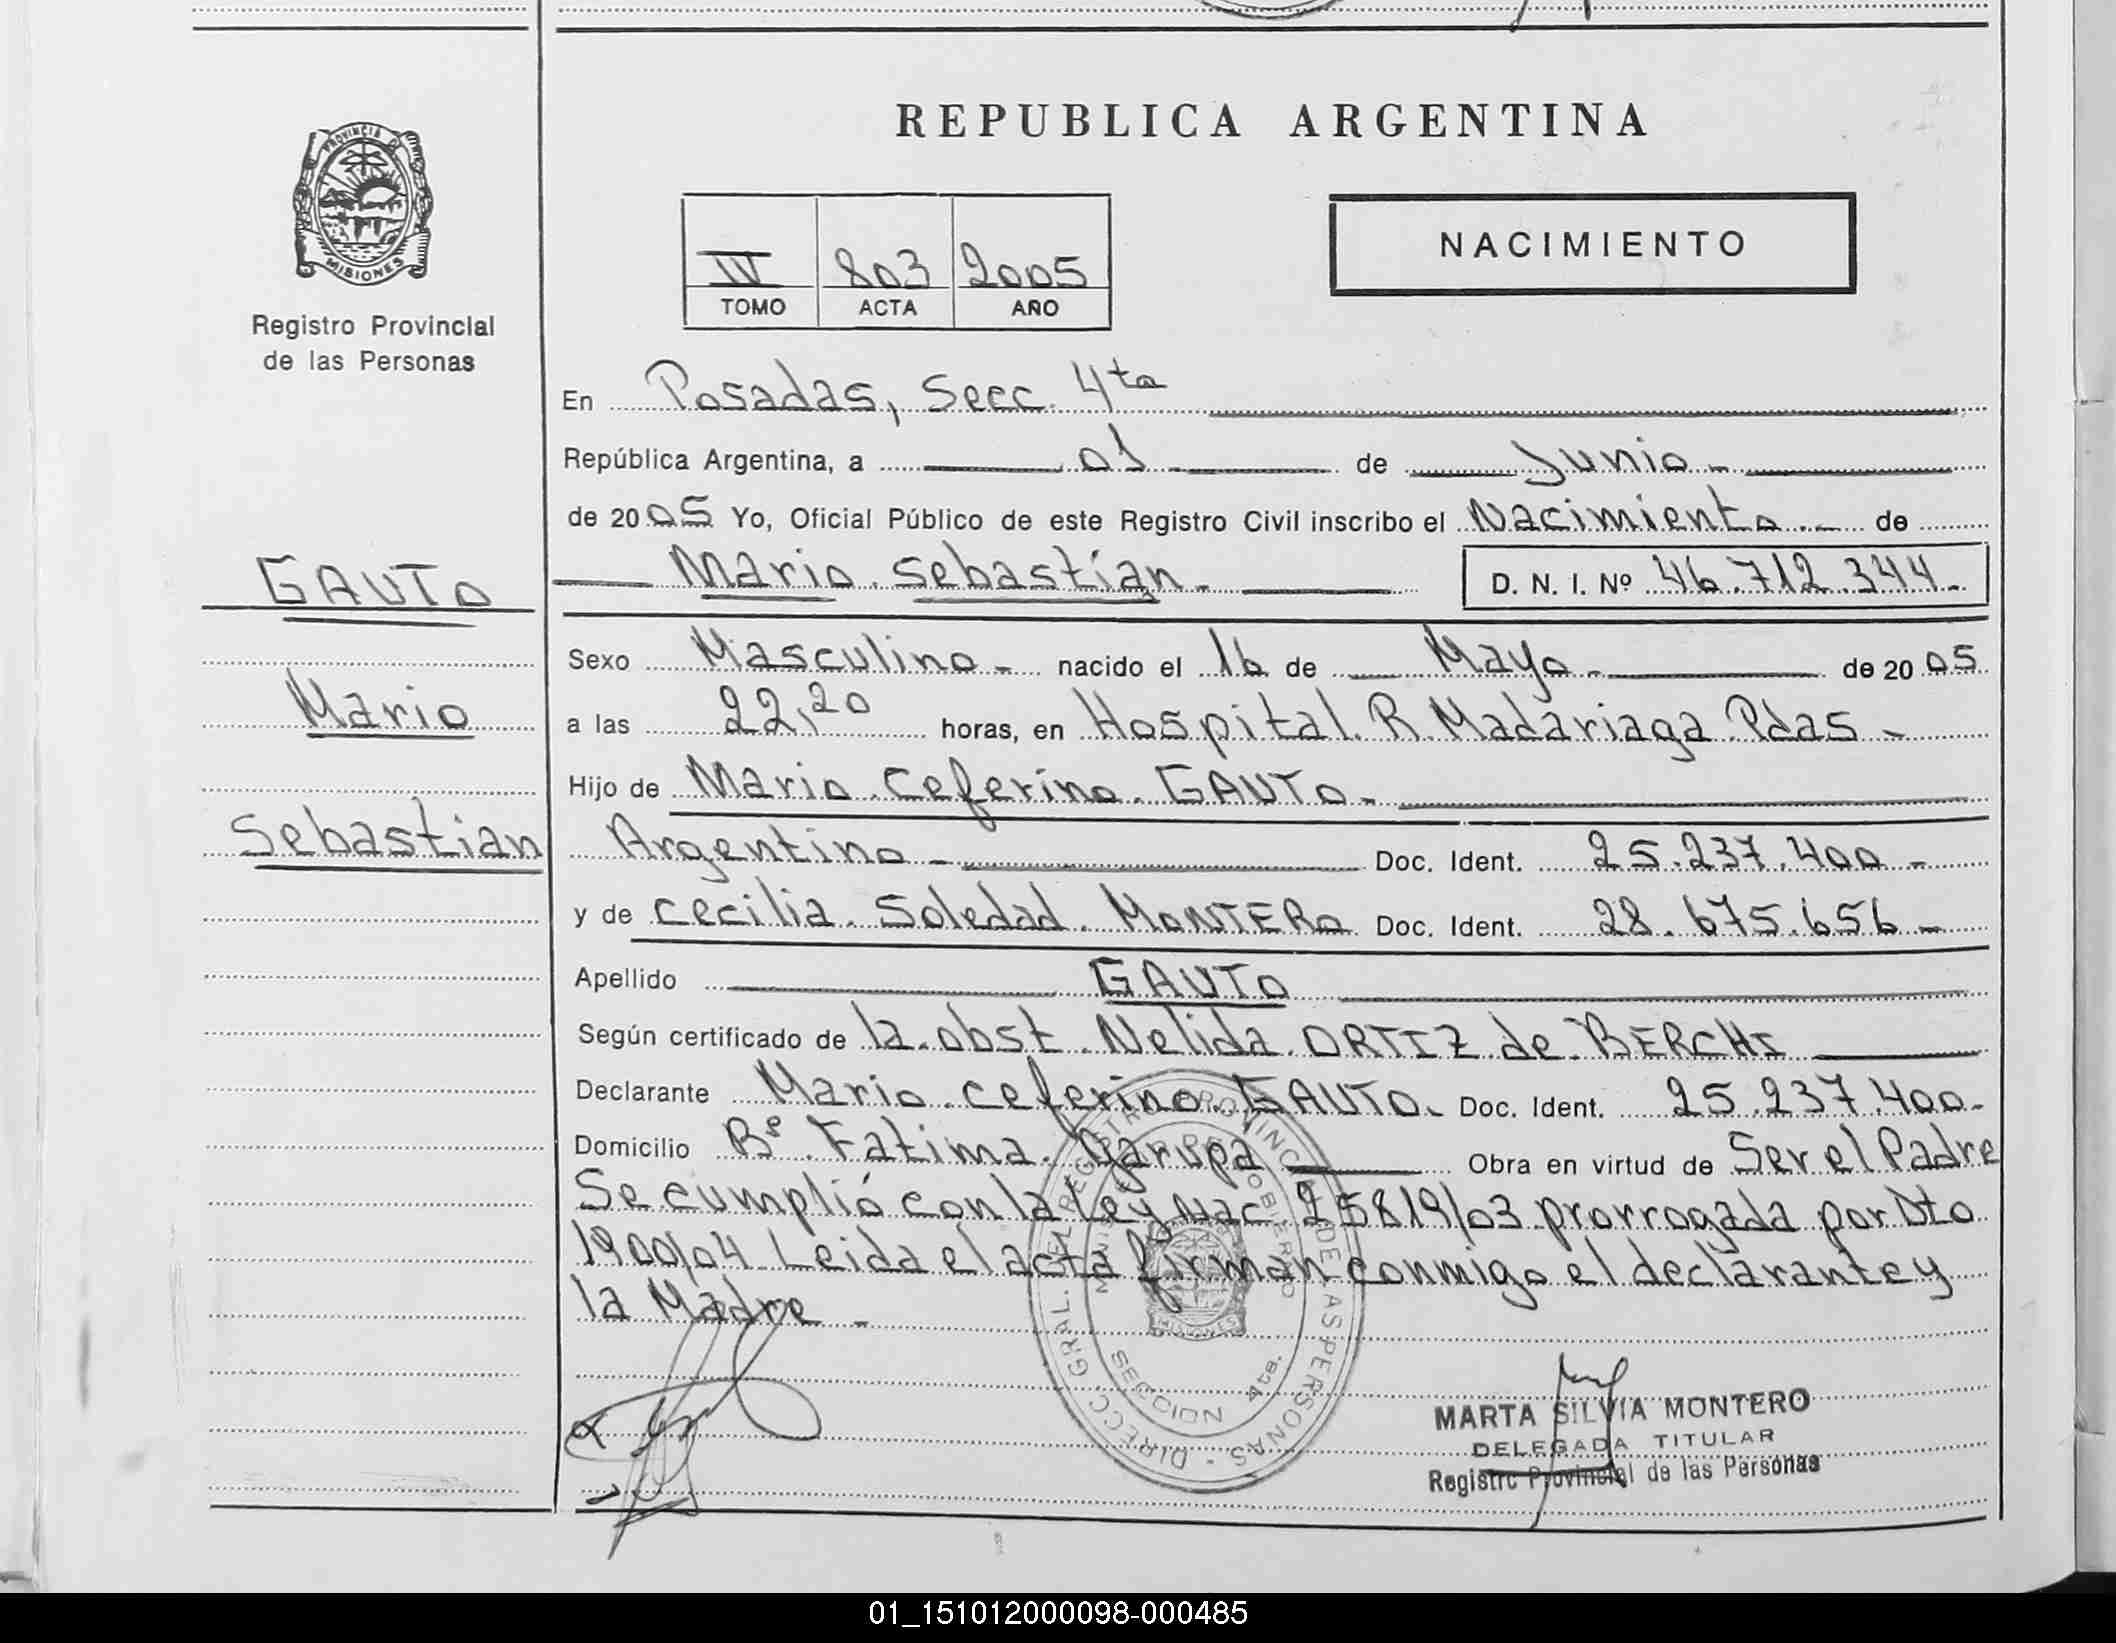 REPUBLICA ARGENTINA
PROVINCIA DE
MISIONES
Registro Provincial
de las Personas
IV 803 2005
TOMO ACTA AÑO
NACIMIENTO
GAUTO
Mario
Sebastian
En Posadas, Secc. 4ta
República Argentina, a 01 de Junio
de 2005 Yo, Oficial Público de este Registro Civil inscribo el Nacimiento de
Mario Sebastián D. N. I. Nº 46.712.344
Sexo Masculino nacido el 16 de Mayo de 2005
a las 22,20 horas, en Hospital R. Madariaga Pdas
Hijo de Mario Ceferino GAUTO
Argentino Doc. Ident. 25.237.400
y de Cecilia Soledad MONTERO Doc. Ident. 28.675.656
Apellido GAUTO
Según certificado de la obst. Nelida ORTIZ de BERCHI
Declarante Mario Ceferino GAUTO Doc. Ident. 25.237.400
Domicilio Bº Fatima. Garupa Obra en virtud de Ser el Padre
Se cumplió con la Ley Nac 25819/03 prorrogada por Dto
1900/04 Leida el acta firman conmigo el declarante y
la Madre
DIRECC GRAL. DEL REGISTRO PROVINCIAL DE LAS PERSONAS
MINISTERIO DE GOBIERNO
MISIONES
SECCION 4ta.
MARTA SILVIA MONTERO
DELEGADA TITULAR
Registro Provincial de las Personas
01_151012000098-000485